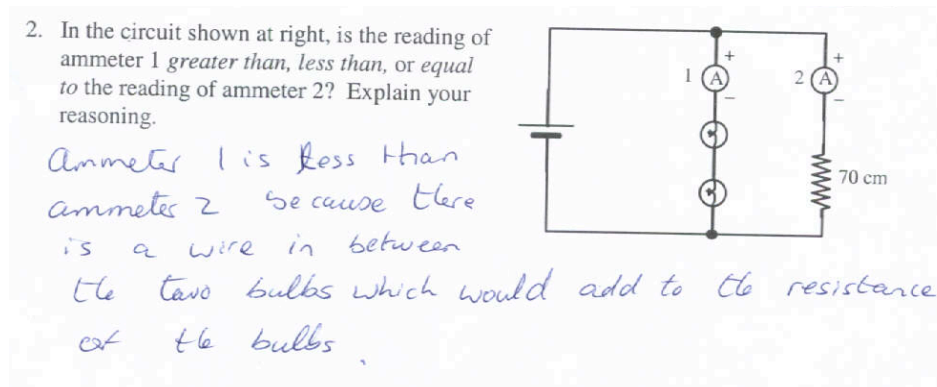 2. In the circuit shown at right, is the reading of
ammeter 1 greater than, less than, or equal
to the reading of ammeter 2? Explain your
reasoning.
+
1 A
−
+
2 A
−
70 cm
Ammeter 1 is less than
ammeter 2 because there
is a wire in between
the two bulbs which would add to the resistance
of the bulbs.